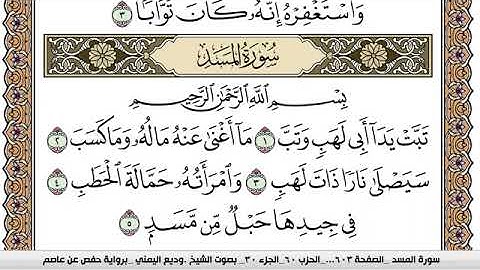 وَاسْتَغْفِرْهُ إِنَّهُ كَانَ تَوَّابًا ٣
سُورَةُ الْمَسَدِ
بِسْمِ اللَّهِ الرَّحْمَٰنِ الرَّحِيمِ
تَبَّتْ يَدَا أَبِي لَهَبٍ وَتَبَّ ١ مَا أَغْنَىٰ عَنْهُ مَالُهُ وَمَا كَسَبَ ٢
سَيَصْلَىٰ نَارًا ذَاتَ لَهَبٍ ٣ وَامْرَأَتُهُ حَمَّالَةَ الْحَطَبِ ٤
فِي جِيدِهَا حَبْلٌ مِّن مَّسَدٍ ٥
سورة المسد _الصفحة ٦٠٣_... الحزب ٦٠_ الجزء ٣٠_ بصوت الشيخ .وديع اليمني _برواية حفص عن عاصم